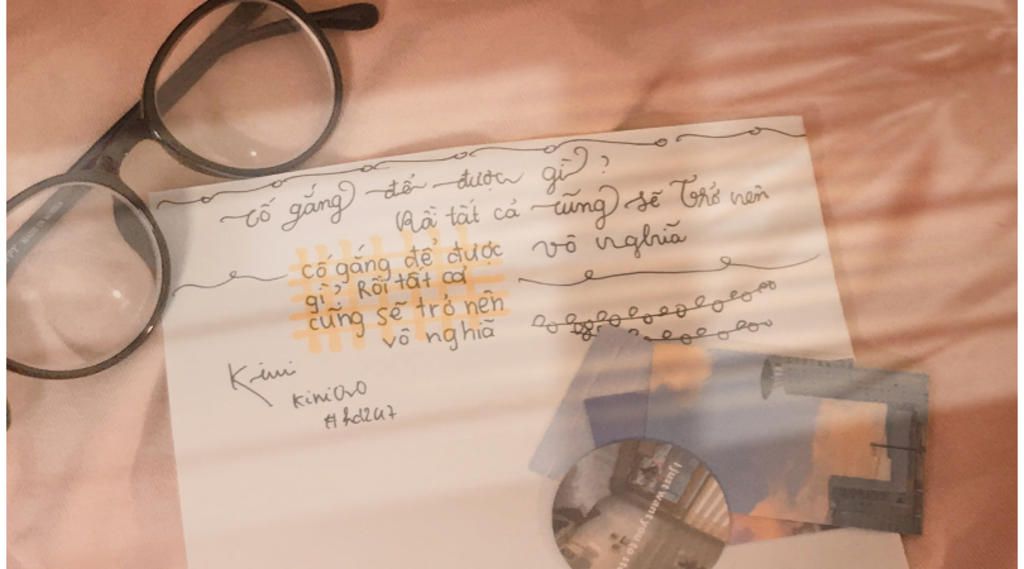 cố gắng để được gì?
Rồi tất cả cũng sẽ trở nên
vô nghĩa
cố gắng để được
gì, Rồi tất cả
cũng sẽ trở nên
vô nghĩa
Kimi
Kimi0v0
#hd247
I just want you to